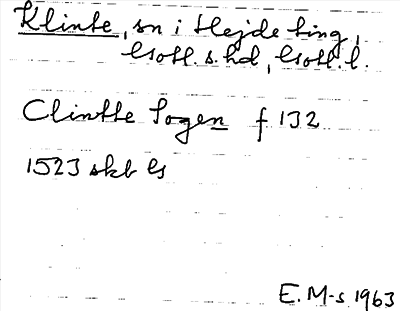 Klinte, sn i Hejde ting,
Gotl. s. hd, Gotl. l.
Clintte Sogen f 132
1523 skb G
E. M-s 1963